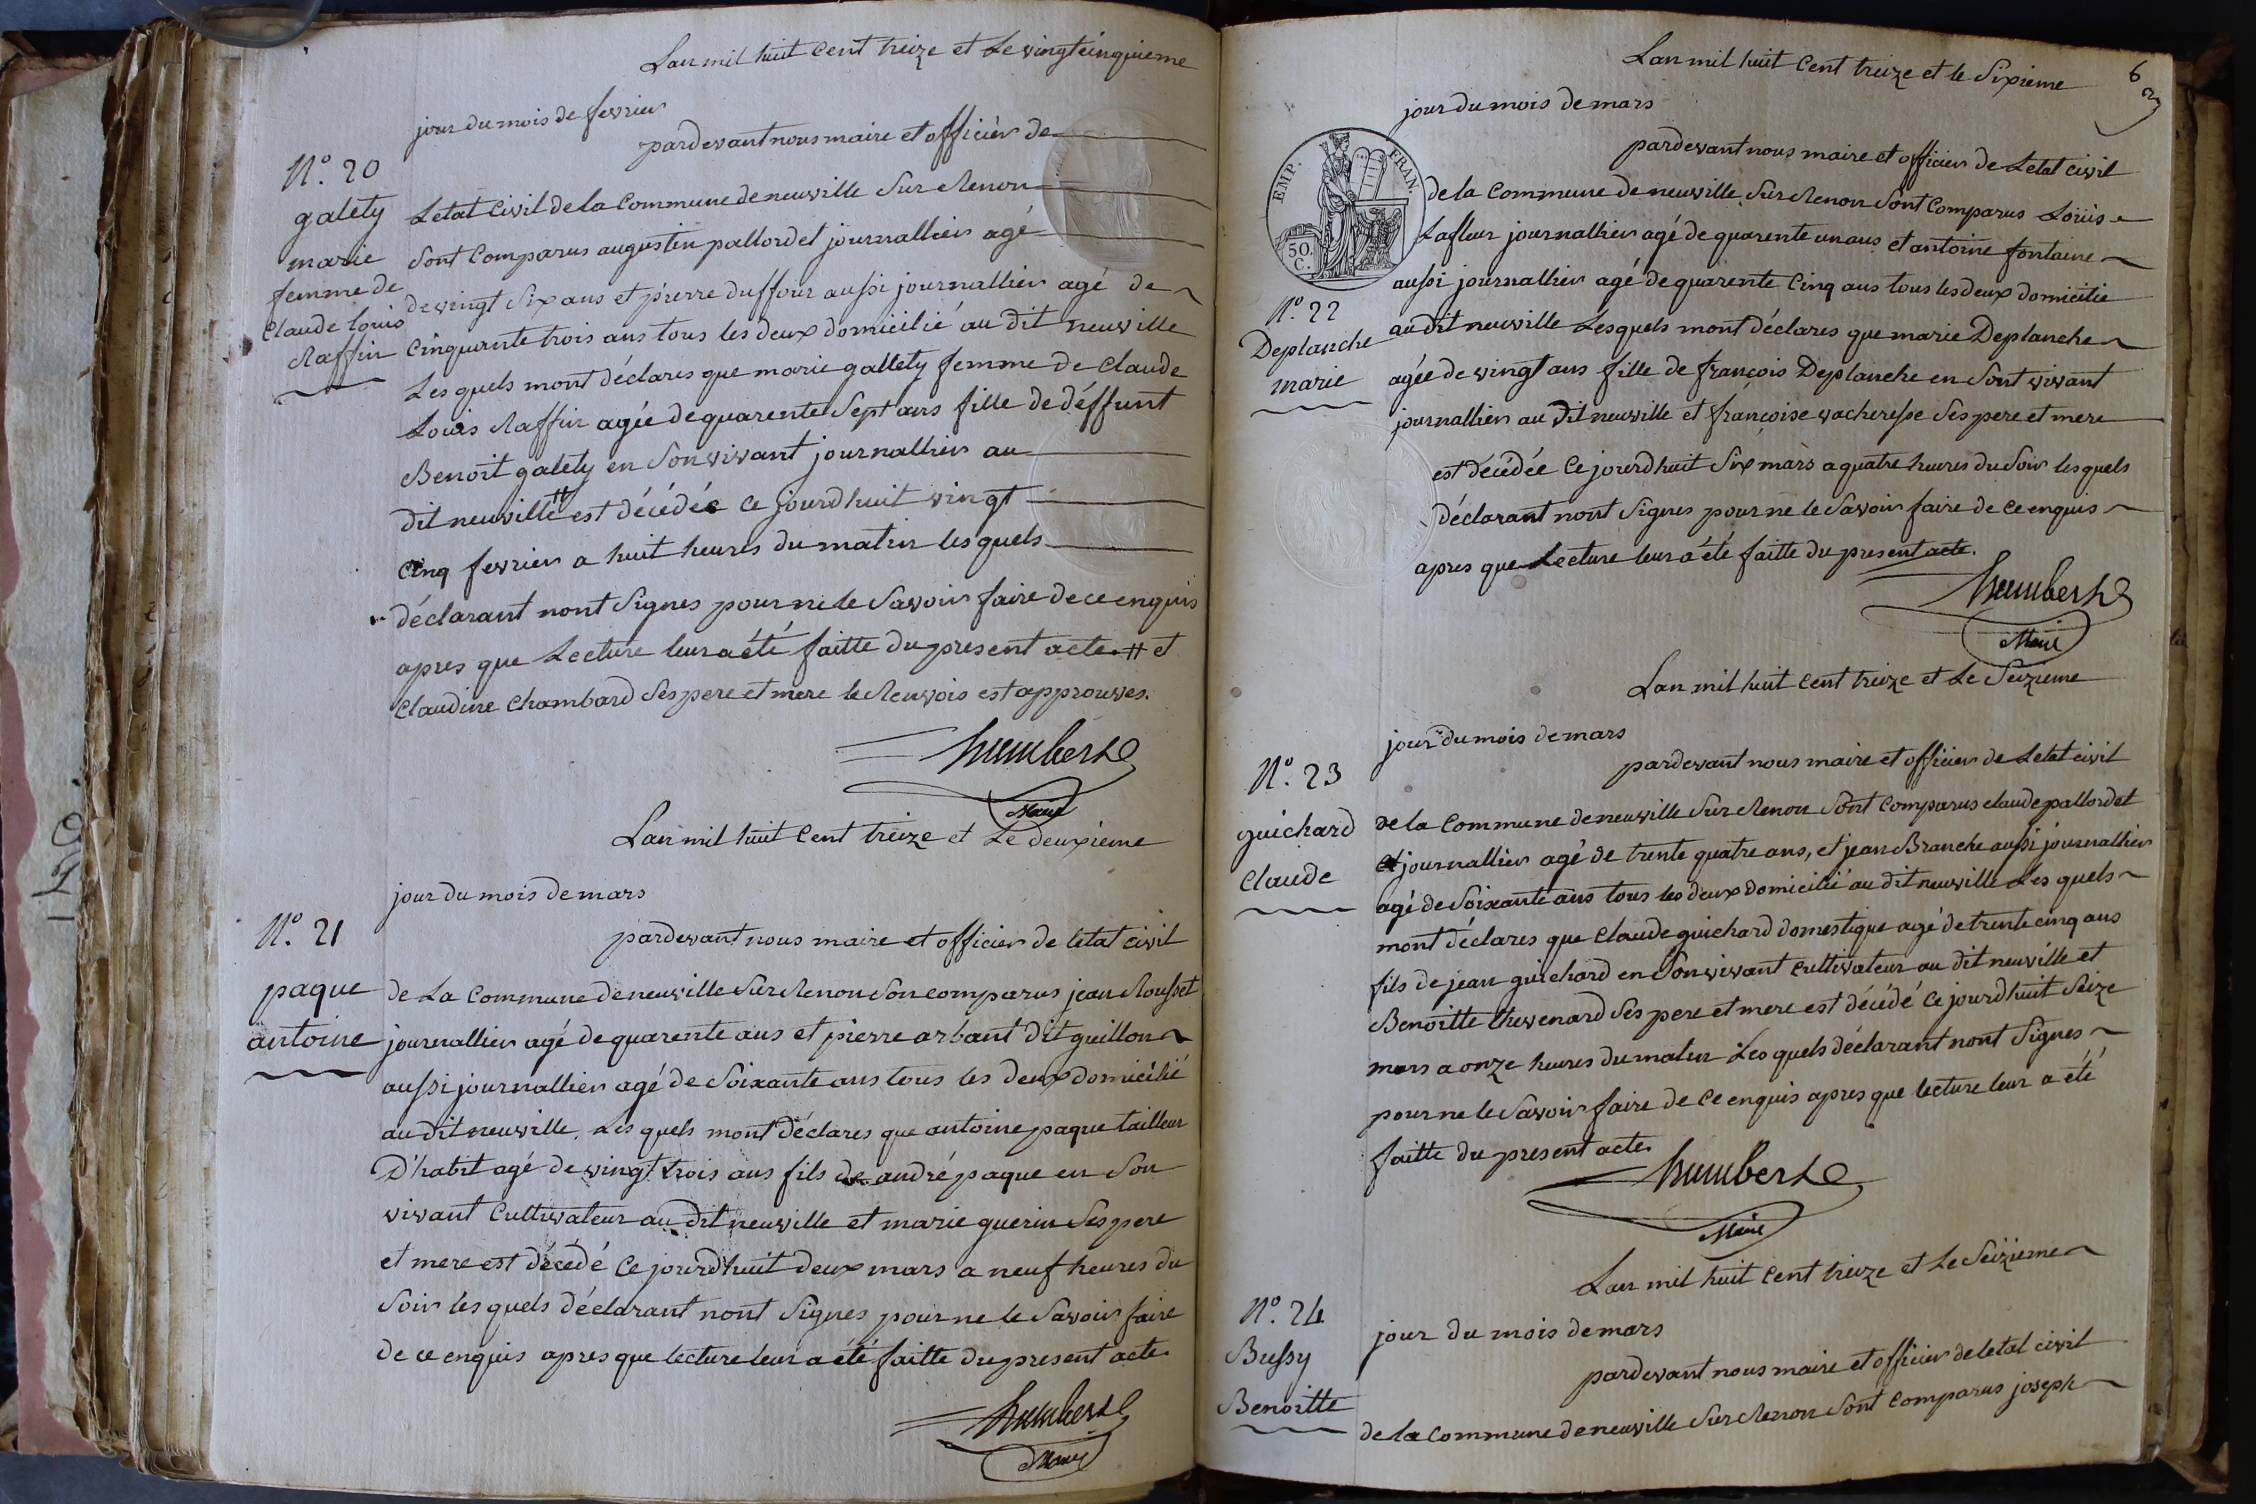 Lan mil huit cent treize et Le vingtcinquieme
jour du mois de fevrier
pardevant nous maire et officier de
N.º 20
galety
marie
femme de
Claude louis
Raffin
Letat civil de la Commune de neuville Sur Renon
Sont Comparus augustin pallordet journallier agé
de vingt Six ans et pierre duffour aussi journallier agé de
Cinquente trois ans tous les deux domicilié au dit neuville
Les quels mont déclares que marie gallety femme de Claude
Louis Raffin agée de quarente Sept ans fille de déffunt
Benoit galety en Son vivant journallier au
dit neuville # est décédée ce jourdhuit vingt
cinq fevrier a huit heures du matin les quels
déclarant nont Signes pour ne le Savoir faire de ce enquis
apres que Lecture leur a été faitte du present acte. # et
Claudine Chambard Ses pere et mere le Renvois est approuves.
humbert
Maire
Lan mil huit Cent treize et Le deuxieme
jour du mois de mars
N.º 21
paque
antoine
pardevant nous maire et officier de letat civil
de La Commune de neuville Sur Renon Son comparus jean Rousset
journallier agé de quarente ans et pierre arbant dit guillon
aussi journallier agé de Soixante ans tous les deux domicilié
au dit neuville. Les quels mont déclares que antoine paque tailleur
D'habit agé de vingt trois ans fils de andré paque en Son
vivant Cultivateur au dit neuville et marie guerin Ses pere
et mere est décédé Ce jourdhuit deux mars a neuf heures du
Soir les quels déclarant nont Signes pour ne le Savoir faire
de ce enquis apres que lecture leur a été faitte du present acte.
humbert
Maire
Lan mil huit Cent treize et le Sixieme
6
jour du mois de mars
EMP. FRAN.
50.
C.
pardevant nous maire et officier de Letat civil
de la Commune de neuville Sur Renon Sont Comparus Loüis
Lafleur journallier agé de quarente un ans et antoine fontaine
aussi journallier agé de quarente Cinq ans tous les deux domicilie
N.º 22
Deplanche
marie
au dit neuville Lesquels mont déclares que marie Deplanche
agée de vingt ans fille de françois Deplanche en Sont vivant
journallier au Dit neuville et françoise vacheresse Ses pere et mere
est décédée Ce jourdhuit Six mars a quatre heures du Soir lesquels
déclarant nont Signes pour ne le Savoir faire de ce enquis
apres que Lecture leur a été faitte du present acte.
humbert
Maire
Lan mil huit cent treize et Le Seizieme
jour du mois de mars
N.º 23
guichard
Claude
pardevant nous maire et officier de Letat civil
de la Commune de neuville Sur Renon Sont Comparus claude pallordet
journallier agé de trente quatre ans, et jean Branche aussi journallier
agé de Soixante ans tous les deux domicilié au dit neuville Les quels
mont déclares que Claude guichard domestique agé de trente cinq ans
fils de jean guichard en Son vivant Cultivateur au dit neuville et
Benoitte thevenard Ses pere et mere est décédé Ce jourdhuit Seize
mars a onze heures du matin Les quels déclarant nont Signes
pour ne le Savoir faire de Ce enquis apres que lecture leur a été
faitte du present acte.
humbert
Maire
Lan mil huit Cent treize et Le Seizieme
N.º 24
Bussy
Benoitte
jour du mois de mars
pardevant nous maire et officier de letat civil
de la Commune de neuville Sur Renon Sont comparus joseph